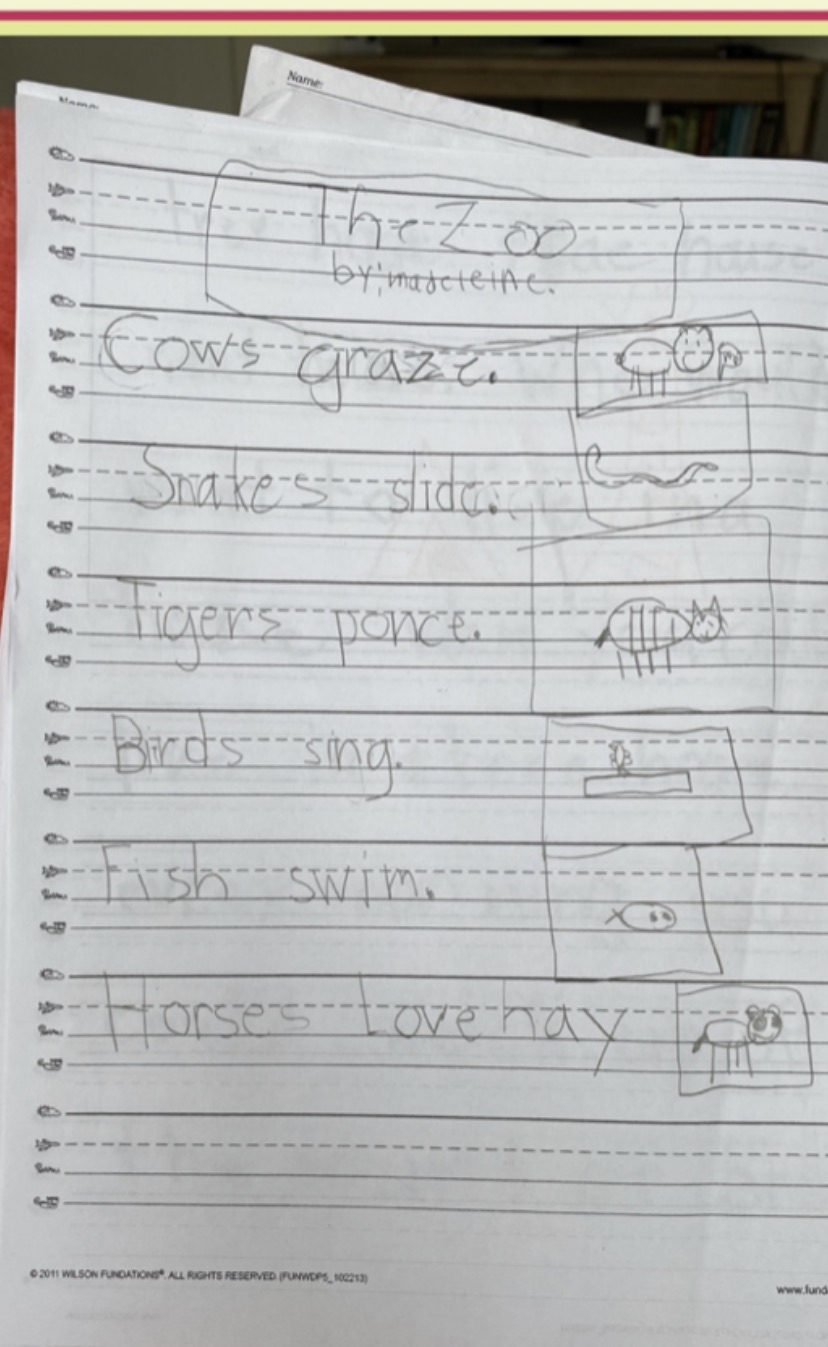 Name:
Name:
The Zoo
by: madeleine.
Cows graze.
Snakes slide.
Tigers ponce.
Birds sing.
Fish swim.
Horses Love hay
© 2011 WILSON FUNDATIONS®. ALL RIGHTS RESERVED. (FUNWDP5_102213)
www.fund